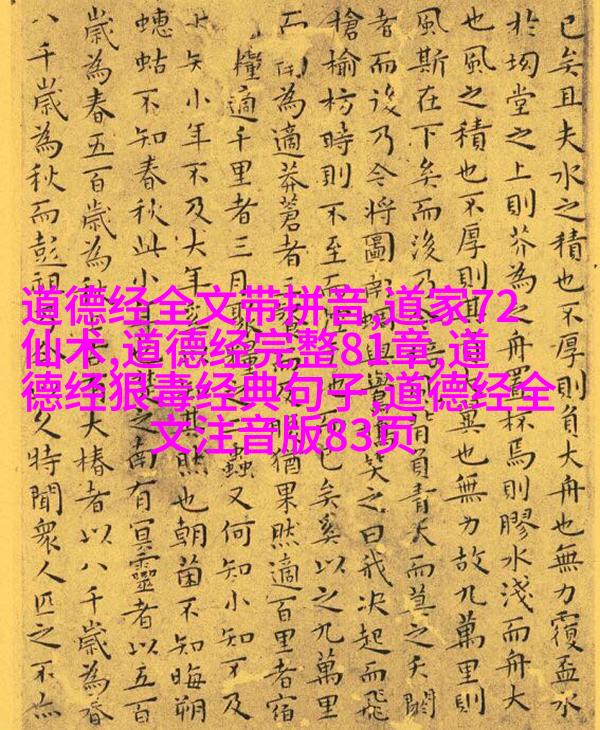 已矣且夫水之積也不厚則負大舟也無力覆盃水
於坳堂之上則芥為之舟置杯焉則膠水淺而舟大
也風之積也不厚則其翼也無力故九萬里則
風斯在下矣而後乃今背負青天而莫之夭閼
者而後乃今將圖南蜩與鷽鳩笑之曰我決起而飛
槍榆枋時則不至而已矣奚以之九萬里
而南為適莽蒼者三猶果然適百里者宿
糧適千里者三月聚糧之二蟲又何知小知不及
大知小年不及大年奚其然也朝菌不知晦朔
蟪蛄不知春秋此小年也楚之南有冥靈者以五百
歲為春五百歲為秋大椿者以八千歲為春
八千歲為秋而彭祖久特聞眾人匹之不亦
道德经全文带拼音,道家72
仙术,道德经完整81章,道
德经狠毒经典句子,道德经全
文注音版83页